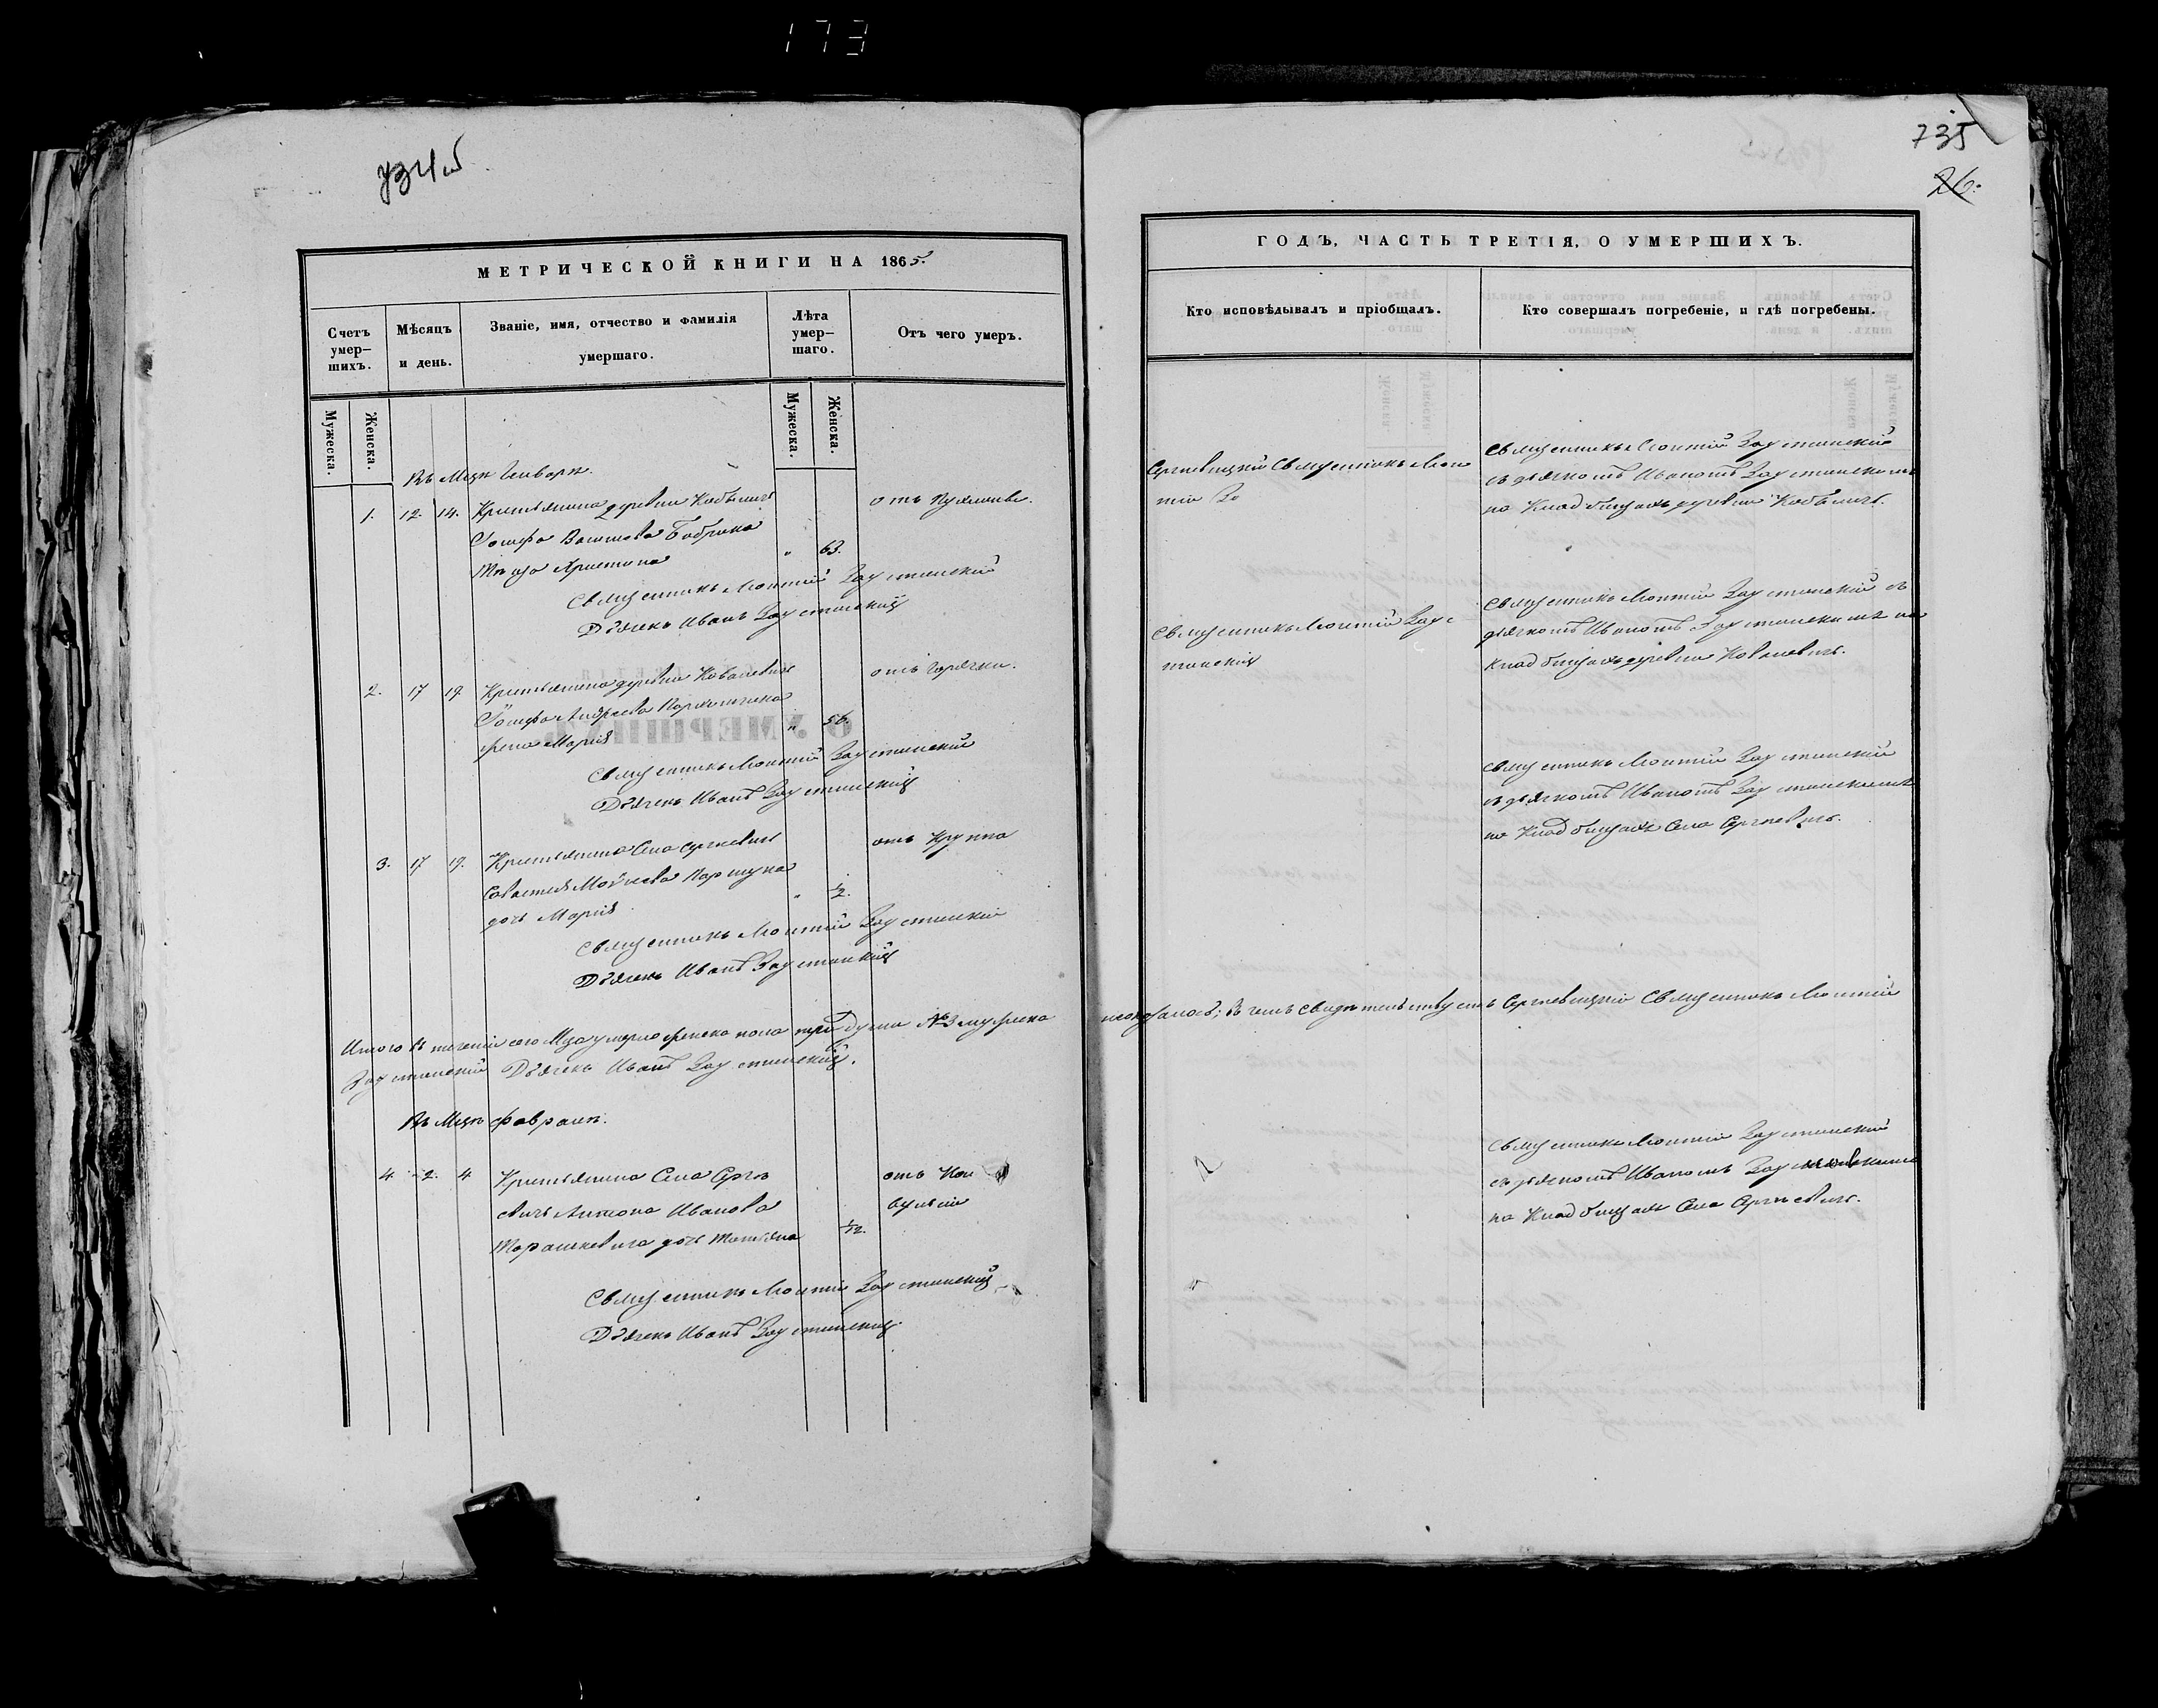 173
734об
МЕТРИЧЕСКОЙ КНИГИ НА 1865.
Счетъ умер-шихъ.
Мѣсяцъ и день.
Званіе, имя, отчество и фамилія умершаго.
Лѣта умер-шаго.
Отъ чего умеръ.
Мужеска.
Женска.
Мужеска.
Женска.
Въ Мцѣ Генварѣ.
1. 12. 14. Крестьянина деревни Кобыличъ отъ
Іосифа Бобрика
Христина " 63.
Священникъ Леонтій Заустинскій
Дьячекъ Иванъ Заустинскій
2. 17 19 Крестьянина деревни Ковалевичъ отъ горячки.
Іосифа Андреева
жена Марія " 56.
Священникъ Леонтій Заустинскій
Дьячекъ Иванъ Заустинскій
3. 17 19. Крестьянина Села Сергѣевичъ отъ Круппа
Савастея Моѵсеева Коршука
дочь Марія " ½.
Священникъ Леонтій Заустинскій
Дьячекъ Иванъ Заустинскій
Итого въ теченіи сего Мца умерло женска пола три души №3 мужеска
Заустинскій Дьячекъ Иванъ Заустинскій.
Въ Мцѣ Февралѣ.
4 2. 4 Крестьянина Села Сергѣ
евичъ Антона Иванова
Тарашкевича дочь Татьяна ½.
Священникъ Леонтій Заустинскій
Дьячекъ Иванъ Заустинскій
735
26.
ГОДЪ, ЧАСТЬ ТРЕТІЯ, О УМЕРШИХЪ.
Кто исповѣдывалъ и пріобщалъ.
Кто совершалъ погребеніе, и гдѣ погребены.
Сергѣевицкій Священникъ Леон
тій За
Священникъ Леонтій Заустинскій
съ дьячкомъ Иваномъ Заустинскимъ
на Кладбищахъ деревни Кобыличъ.
Священникъ Леонтій Заус
тинскій
Священникъ Леонтій Заустинскій съ
дьячкомъ Иваномъ Заустинскимъ на
кладбищахъ деревни Ковалевичъ.
Священникъ Леонтій Заустинскій
съ дьячкомъ Иваномъ Заустинскимъ
на Кладбищахъ Села Сергѣевичъ.
непоказалось; въ чемъ свидѣтельствуемъ Сергѣевицкій Священникъ Леонтій
Священникъ Леонтій Заустинскій
съ дьячкомъ Иваномъ Заустинскимъ
на Кладбищахъ Села Сергѣевичъ.